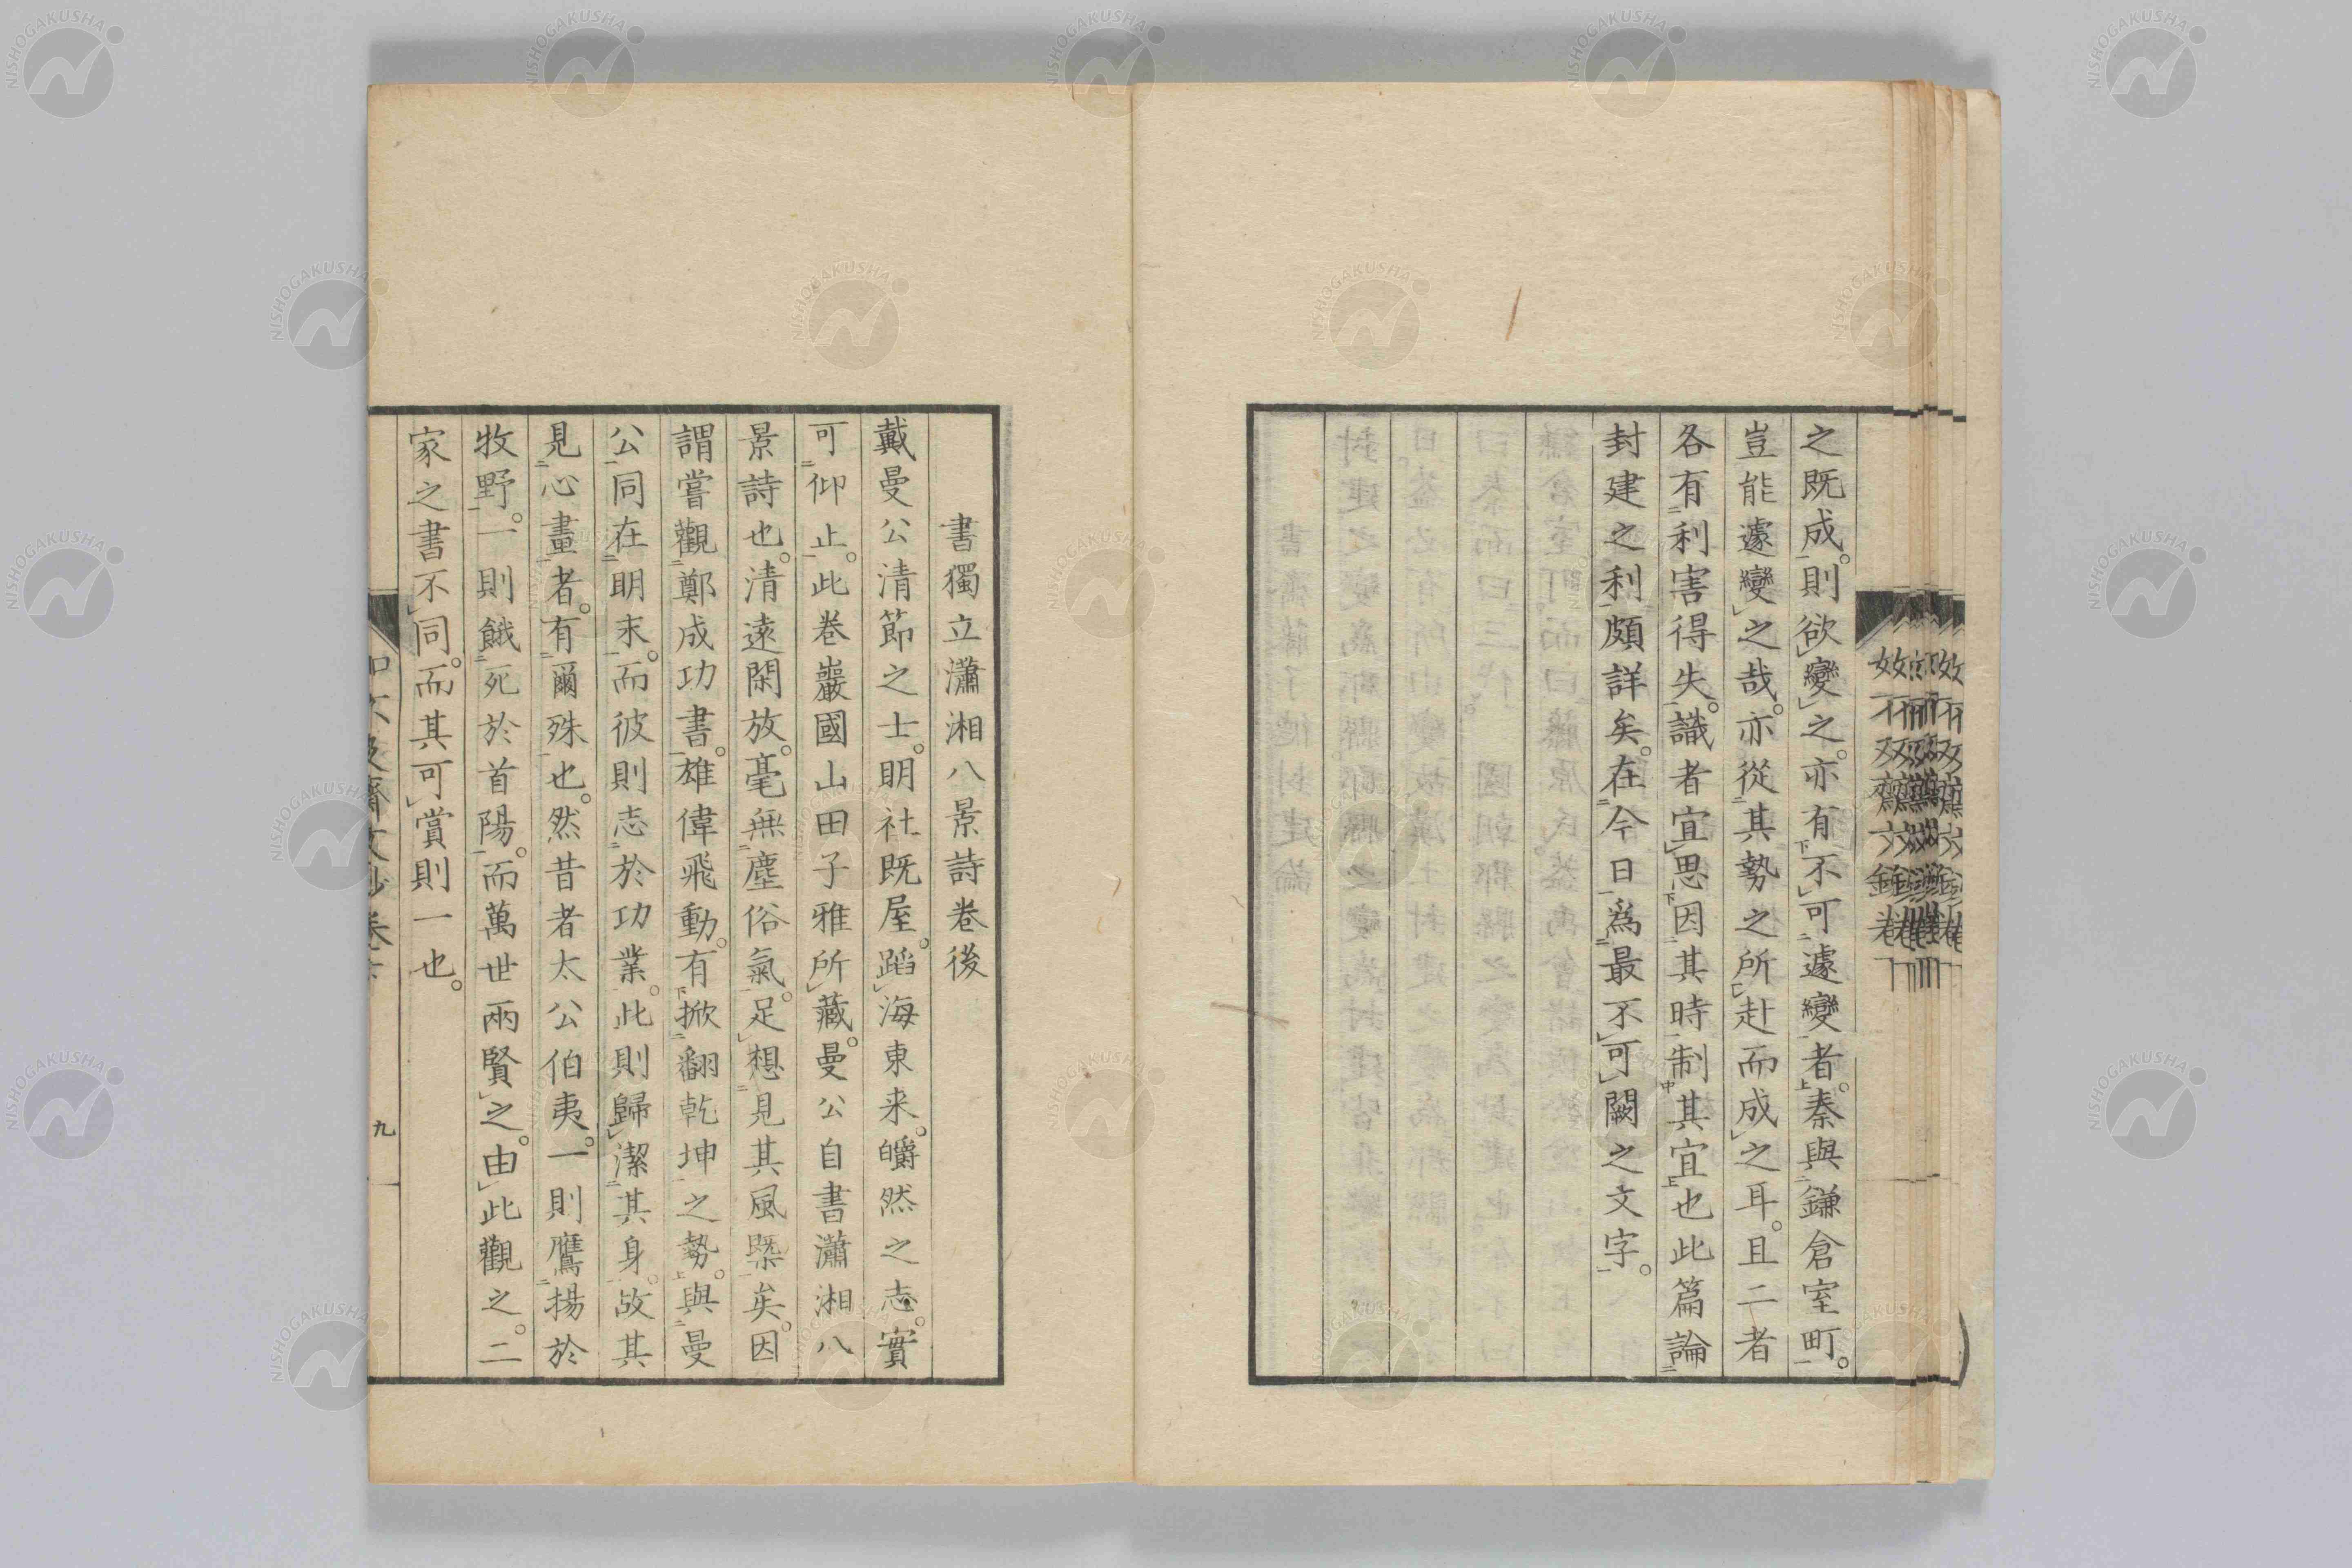 之既成。則欲變之。亦有不可遽變者。秦與鎌倉室町。
豈能遽變之哉。亦從其勢之所赴而成之耳。且二者
各有利害得失。識者宜思因其時制其宜也此篇論
封建之利頗詳矣。在今日爲最不可闕之文字。
書獨立瀟湘八景詩卷後
戴曼公清節之士。明社既屋。蹈海東来。皭然之志。實
可仰止。此卷巖國山田子雅所藏。曼公自書瀟湘八
景詩也。清遠閑放。毫無塵俗氣。足想見其風槩矣。因
謂嘗觀鄭成功書。雄偉飛動。有掀翻乾坤之勢。與曼
公同在明末。而彼則志於功業。此則歸潔其身。故其
見心畫者。有爾殊也。然昔者太公伯夷。一則鷹揚於
牧野。一則餓死於首陽。而萬世兩賢之。由此觀之。二
家之書不同。而其可賞則一也。
九
NISHOGAKUSHA